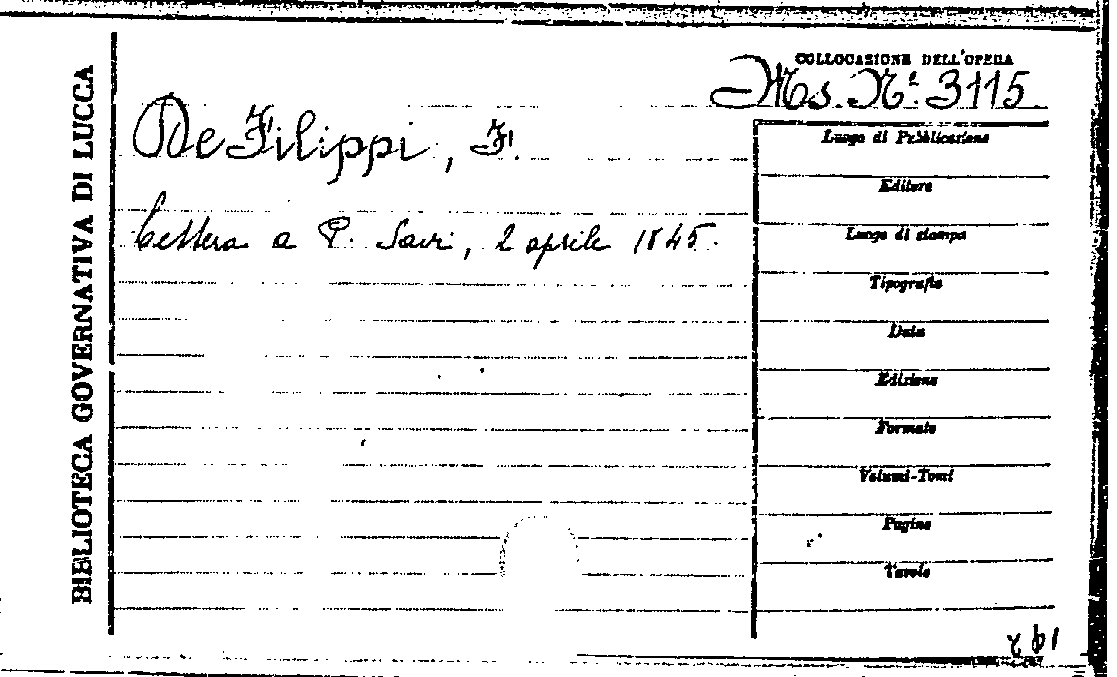 BIBLIOTECA GOVERNATIVA DI LUCCA
COLLOCAZIONE DELL'OPERA
Ms. Nº 3115
De Filippi, F.
Lettera a P. Savi, 2 aprile 1845.
Luogo di Pubblicazione
Editore
Luogo di stampa
Tipografia
Data
Edizione
Formato
Volumi-Tomi
Pagine
Tavole